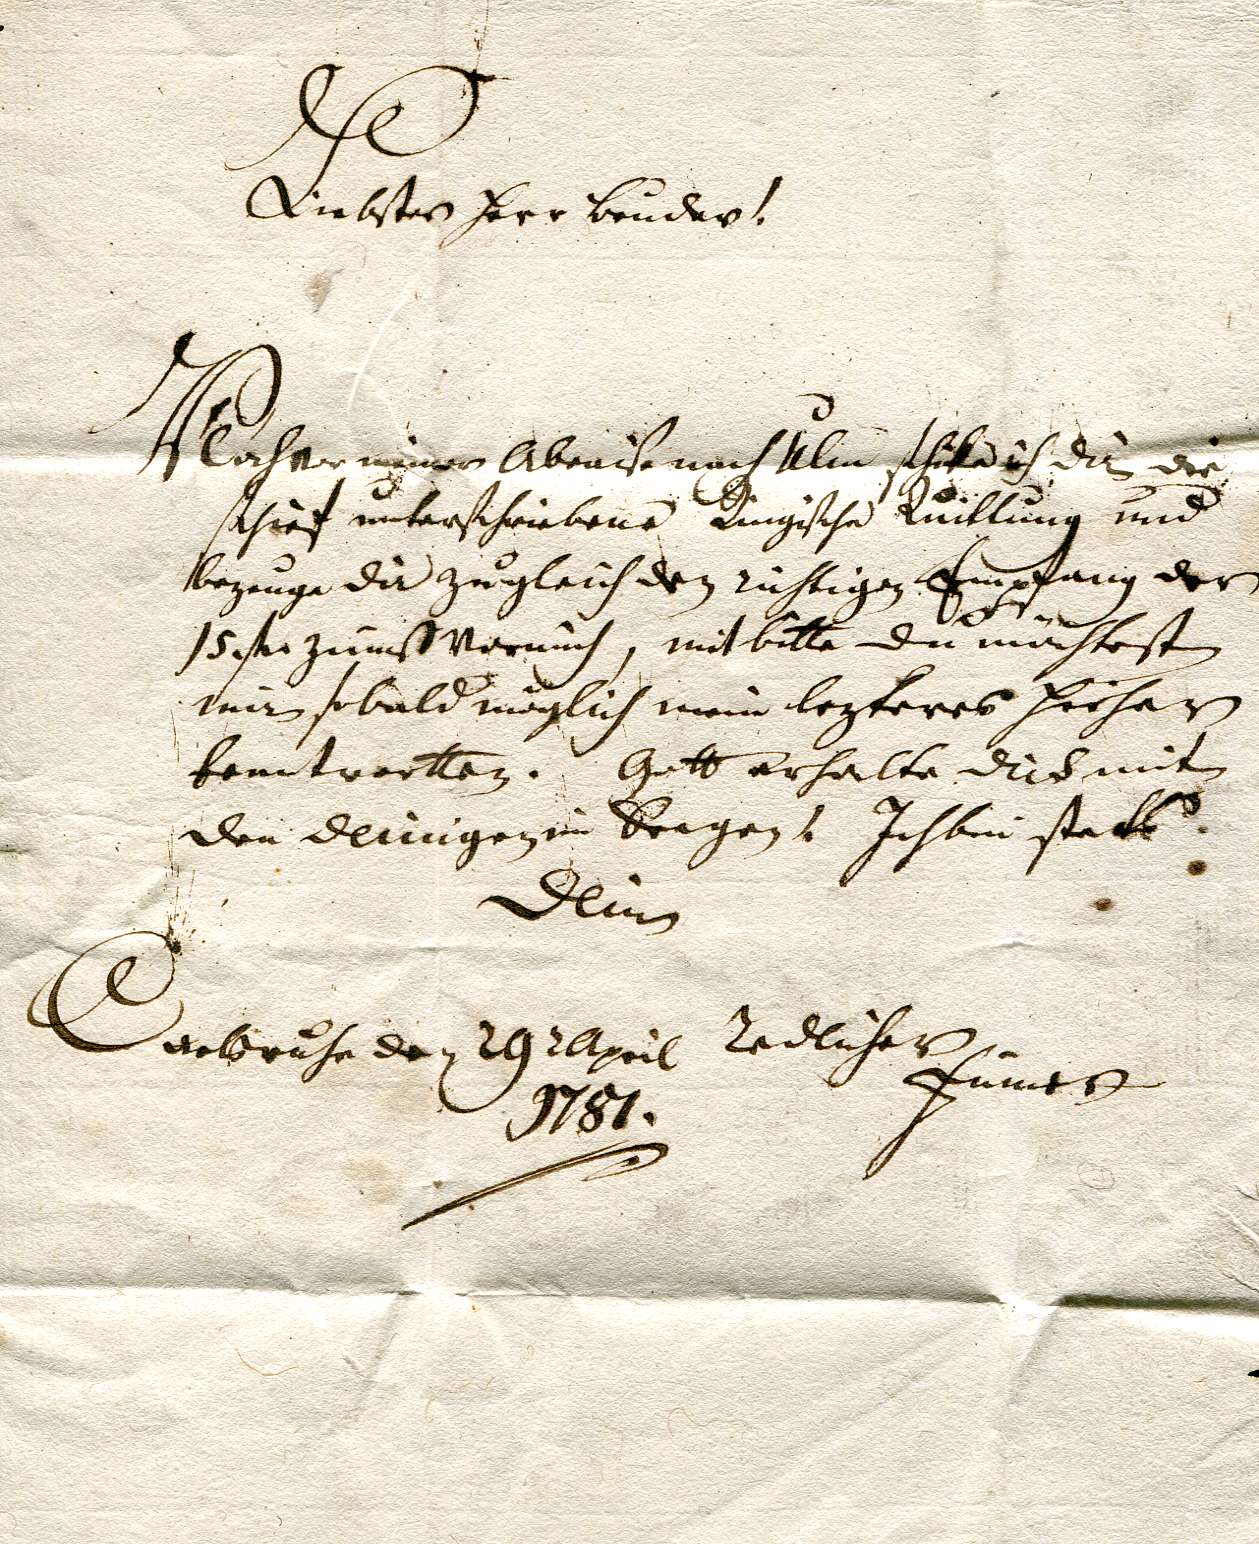 Liebster Herr Bruder!
Noch vor meiner Abreise nach Ulm schicke ich dir die
schief unterschriebene Quittung und
bezeuge dir zugleich den richtigen Empfang der
15 mit bitte du möchtest
mir sobald möglich mein lezteres hieher
beantwortten. Gott erhalte dich mit
den deinigen im Seegen! Ich bin stets
Dein
Carlsruhe den 29 April redlicher
1781.